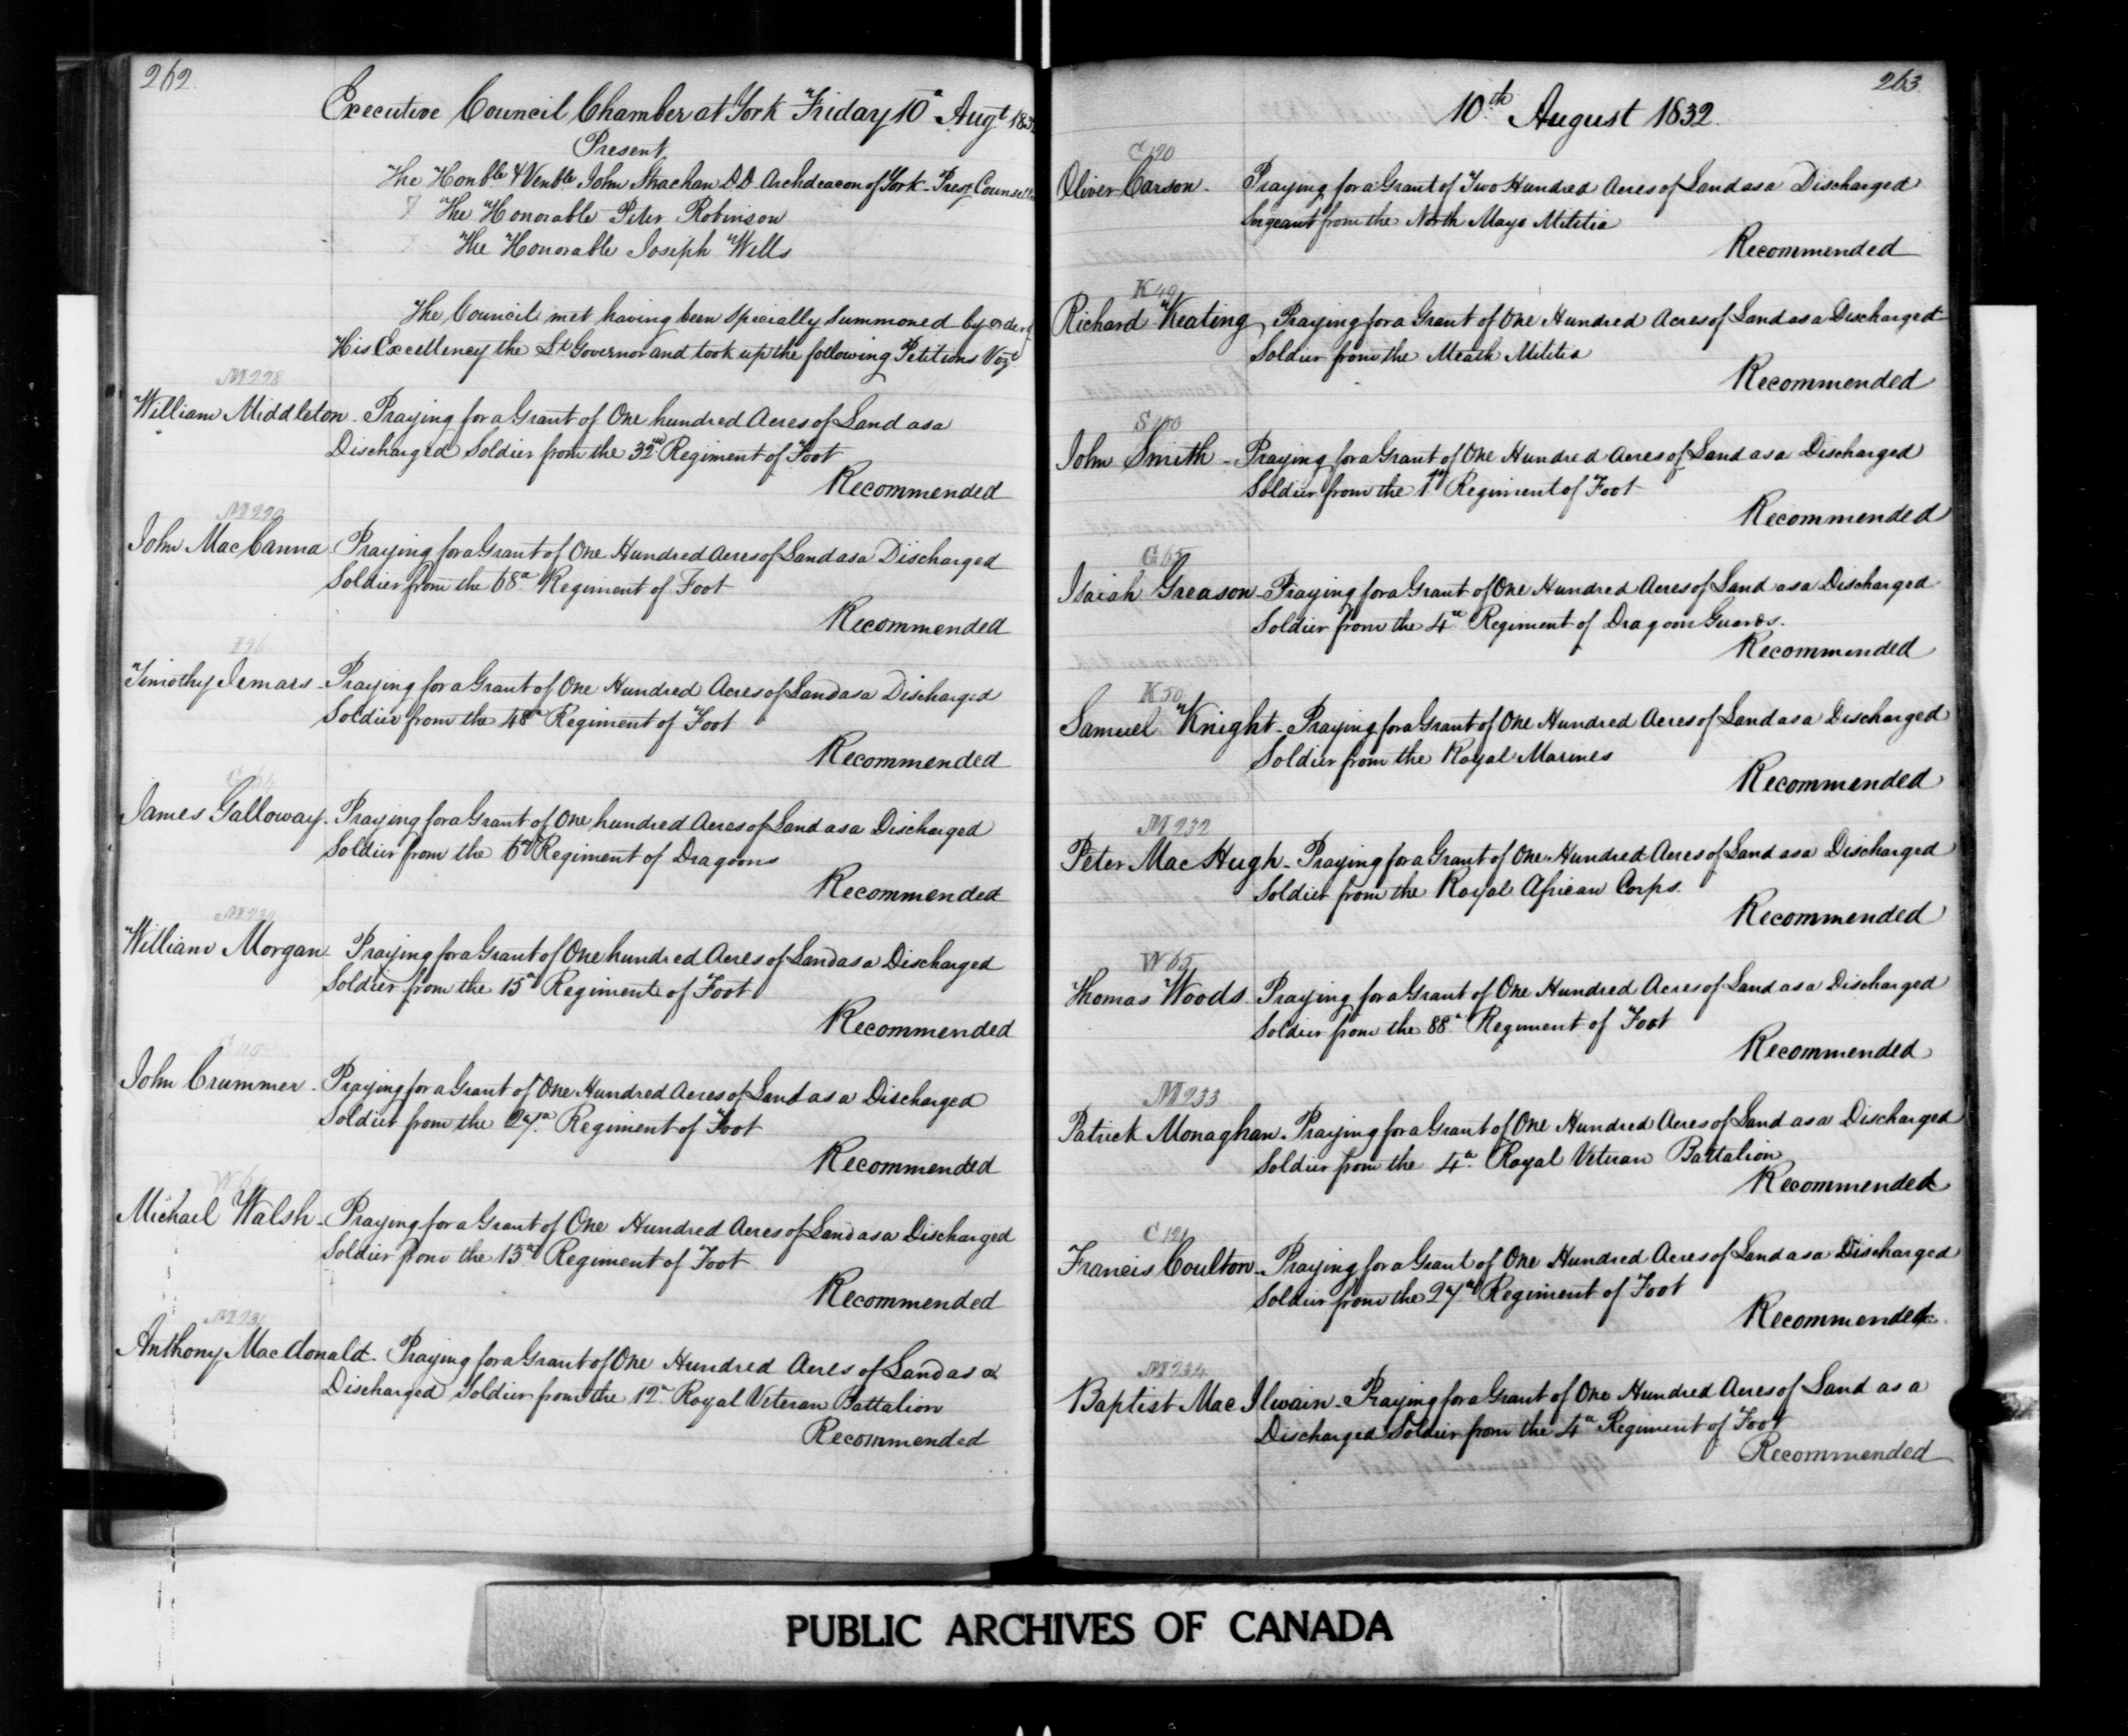 262
Executive Council Chamber at York Friday 10th Augt 183
Present
The Honble & Venble John Strachan D.D. Archdeacon of York - Presg Counsellor
The Honorable Peter Robinson
The Honorable Joseph Wells
The Council met having been specially summoned by order
His Excellency the Lt Governor and took up the following Petitions Vozt
M 228
William Middleton - Praying for a Grant of One hundred Acres of Land as a
Discharged Soldier from the 32nd Regiment of Foot
Recommended
M 229
John MacCanna Praying for a Grant of One Hundred Acres of Land as a Discharged
Soldier from the 68th Regiment of Foot
Recommended
I 26
Timothy Iemars - Praying for a Grant of One Hundred Acres of Land as a Discharged
Soldier from the 48th Regiment of Foot
Recommended
G 64
James Galloway. Praying for a Grant of One hundred Acres of Land as a Discharged
Soldier from the 6th Regiment of Dragoons
Recommended
M 230
William Morgan - Praying for a Grant of One hundred Acres of Land as a Discharged
Soldier from the 15th Regiment of Foot
Recommended
John Crummer - Praying for a Grant of One Hundred Acres of Land as a Discharged
Soldier from the 27th Regiment of Foot
Recommended
W 64
Michael Walsh - Praying for a Grant of One Hundred Acres of Land as a Discharged
Soldier from the 13th Regiment of Foot
Recommended
M 231
Anthony MacDonald - Praying for a Grant of One Hundred Acres of Land as a
Discharged Soldier from the 12th Royal Veteran Battalion
Recommended
263
10th August 1832
C 120
Oliver Carson - Praying for a Grant of Two Hundred Acres of Land as a Discharged
Sergeant from the North Mayo Militia
Recommended
K 49
Richard Keating, Praying for a Grant of One Hundred Acres of Land as a Discharged
Soldier from the Meath Militia
Recommended
S 100
John Smith - Praying for a Grant of One Hundred Acres of Land as a Discharged
Soldier from the 1st Regiment of Foot
Recommended
G 65
Isaiah Greason - Praying for a Grant of One Hundred Acres of Land as a Discharged
Soldier from the 4th Regiment of Dragoon Guards.
Recommended
K 50
Samuel Knight - Praying for a Grant of One Hundred Acres of Land as a Discharged
Soldier from the Royal Marines
Recommended
M 232
Peter MacHugh - Praying for a Grant of One Hundred Acres of Land as a Discharged
Soldier from the Royal African Corps.
Recommended
W 65
Thomas Woods Praying for a Grant of One Hundred Acres of Land as a Discharged
Soldier from the 88th Regiment of Foot
Recommended
M 233
Patrick Monaghan. Praying for a Grant of One Hundred Acres of Land as a Discharged
Soldier from the 4th Royal Veteran Battalion
Recommended
C 121
Francis Coulton - Praying for a Grant of One Hundred Acres of Land as a Discharged
Soldier from the 27th Regiment of Foot
Recommended
M 234
Baptist Mac Ilwain - Praying for a Grant of One Hundred Acres of Land as a
Discharged Soldier from the 4th Regiment of Foot
Recommended
PUBLIC ARCHIVES OF CANADA